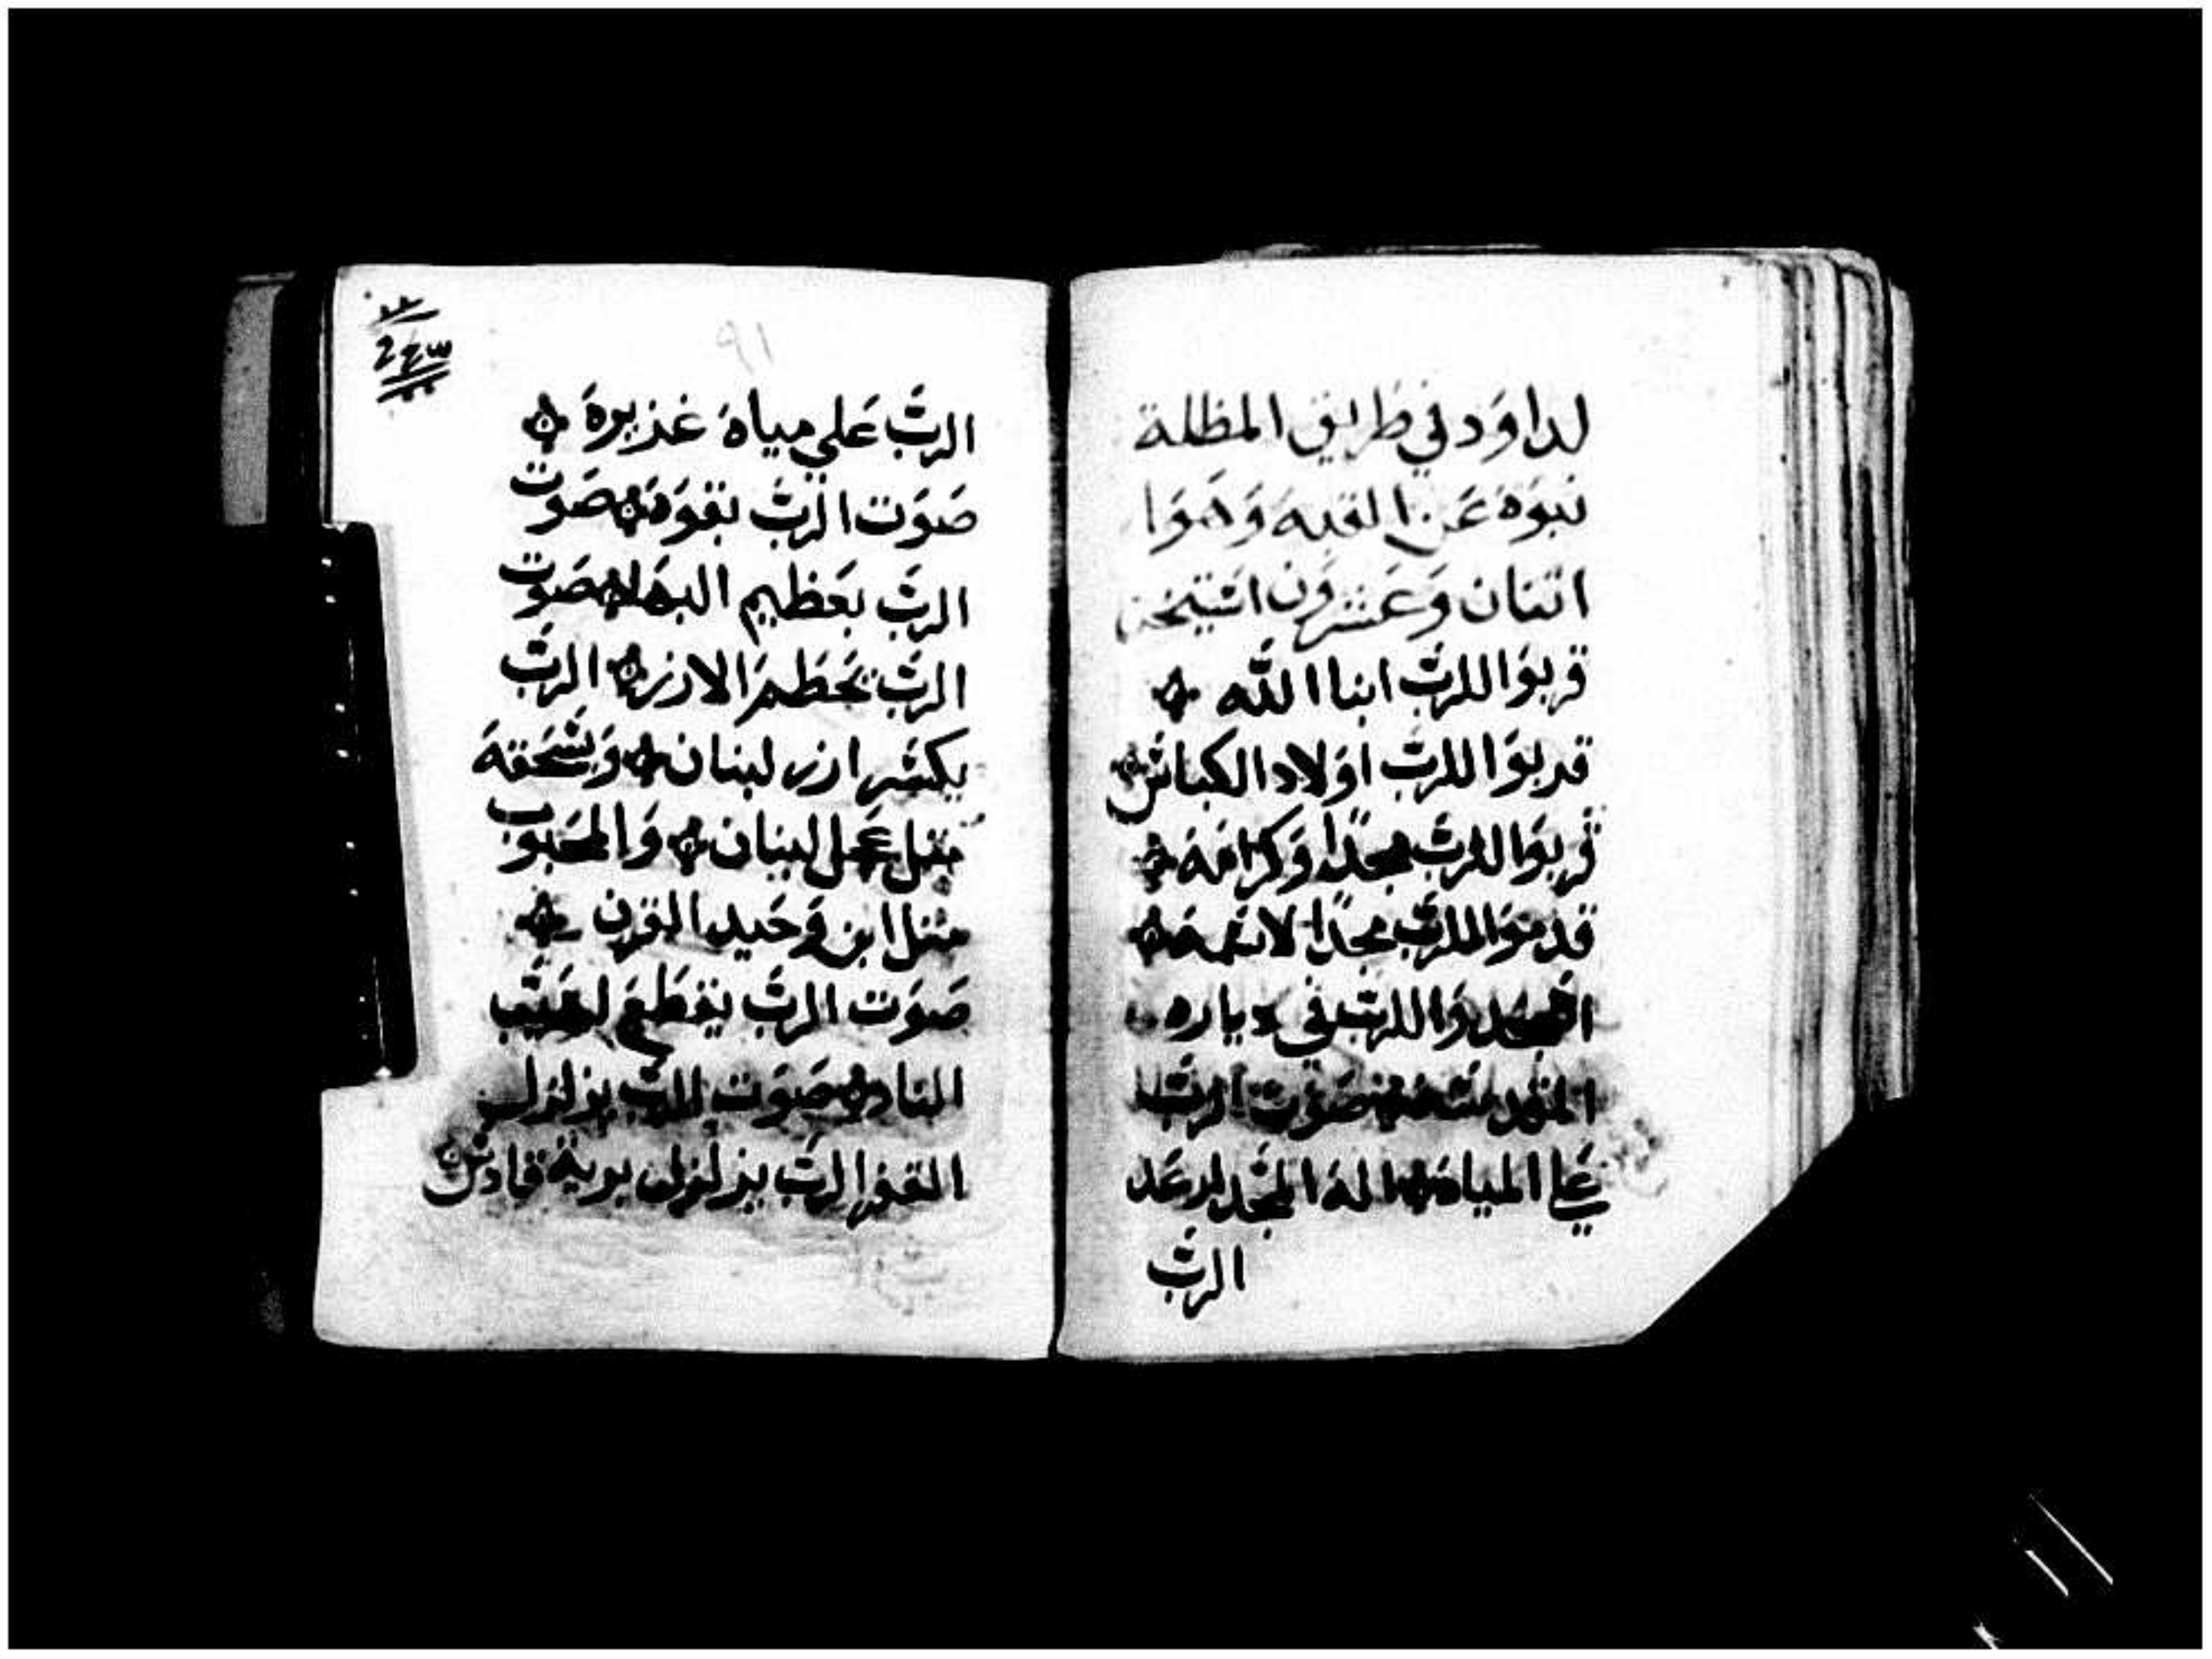 لداوَد في طريق المظلة
نبوَة عَن القيه وَهَوَا
اتنان وَعَشرَون اشتيخن
قربوَا للربّ ابنا الله
قدبوَا للربّ اوَلاد الكباش
قربوَا للربّ مجدًا وَكرامَة
قدموَا للربّ مجدًا لاسمه
اسجدوَا للربّ في دياره
المقدسَة صَوَت الربّ
علي المياة اله المجَد ارعَد
الربّ
٩١
الربّ عَلي مياة غذيرة
صَوَت الربّ بقوَة صَوَت
الربّ بعَظيم البها صَوَت
الربّ يحَطم الارز الربّ
يكسّر ارز لبنان وَيسّحَقهَ
متل عجَل لبنان وَالمحَبوَب
متل ابن وَحَيد القرن
صَوَت الربّ يقطَع لهَيب
النار صَوَت الربّ يزلزل
القفر الربّ يزلزل برية قادش